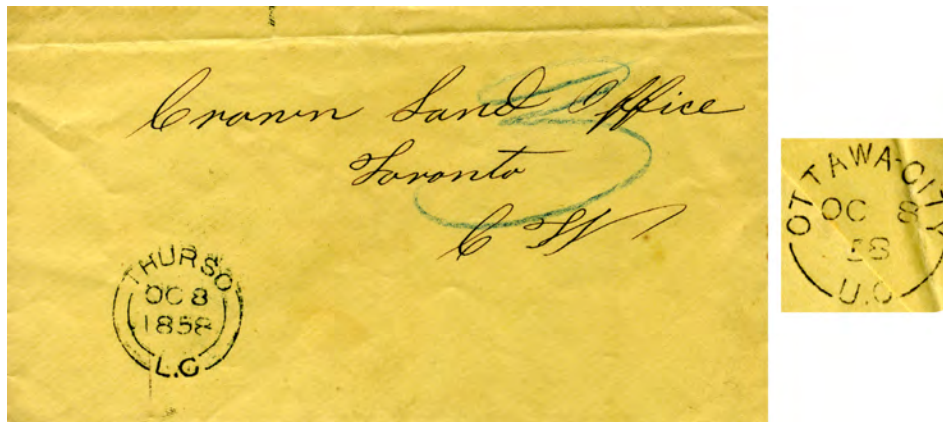 Crown Land Office
Toronto
C W
3
THURSO
OC 8
1858
L.C
OTTAWA-CITY
OC 8
58
U.C